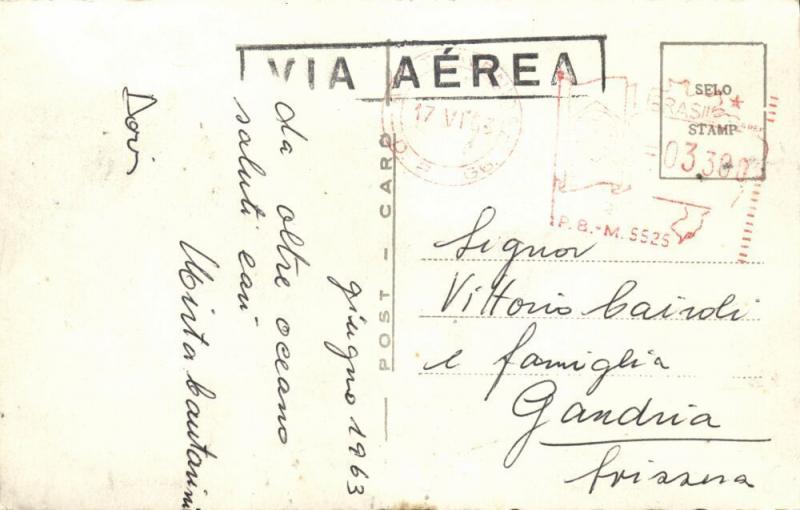 VIA AÉREA
SELO
STAMP
BRASIL
17 VI 63
03380
P.B.-M.5525
POST — CARD
giugno 1963
da oltre oceano
saluti cari
Mirta
Dori
Signor
Vittorio Cairoli
e famiglia
Gandria
Svizzera